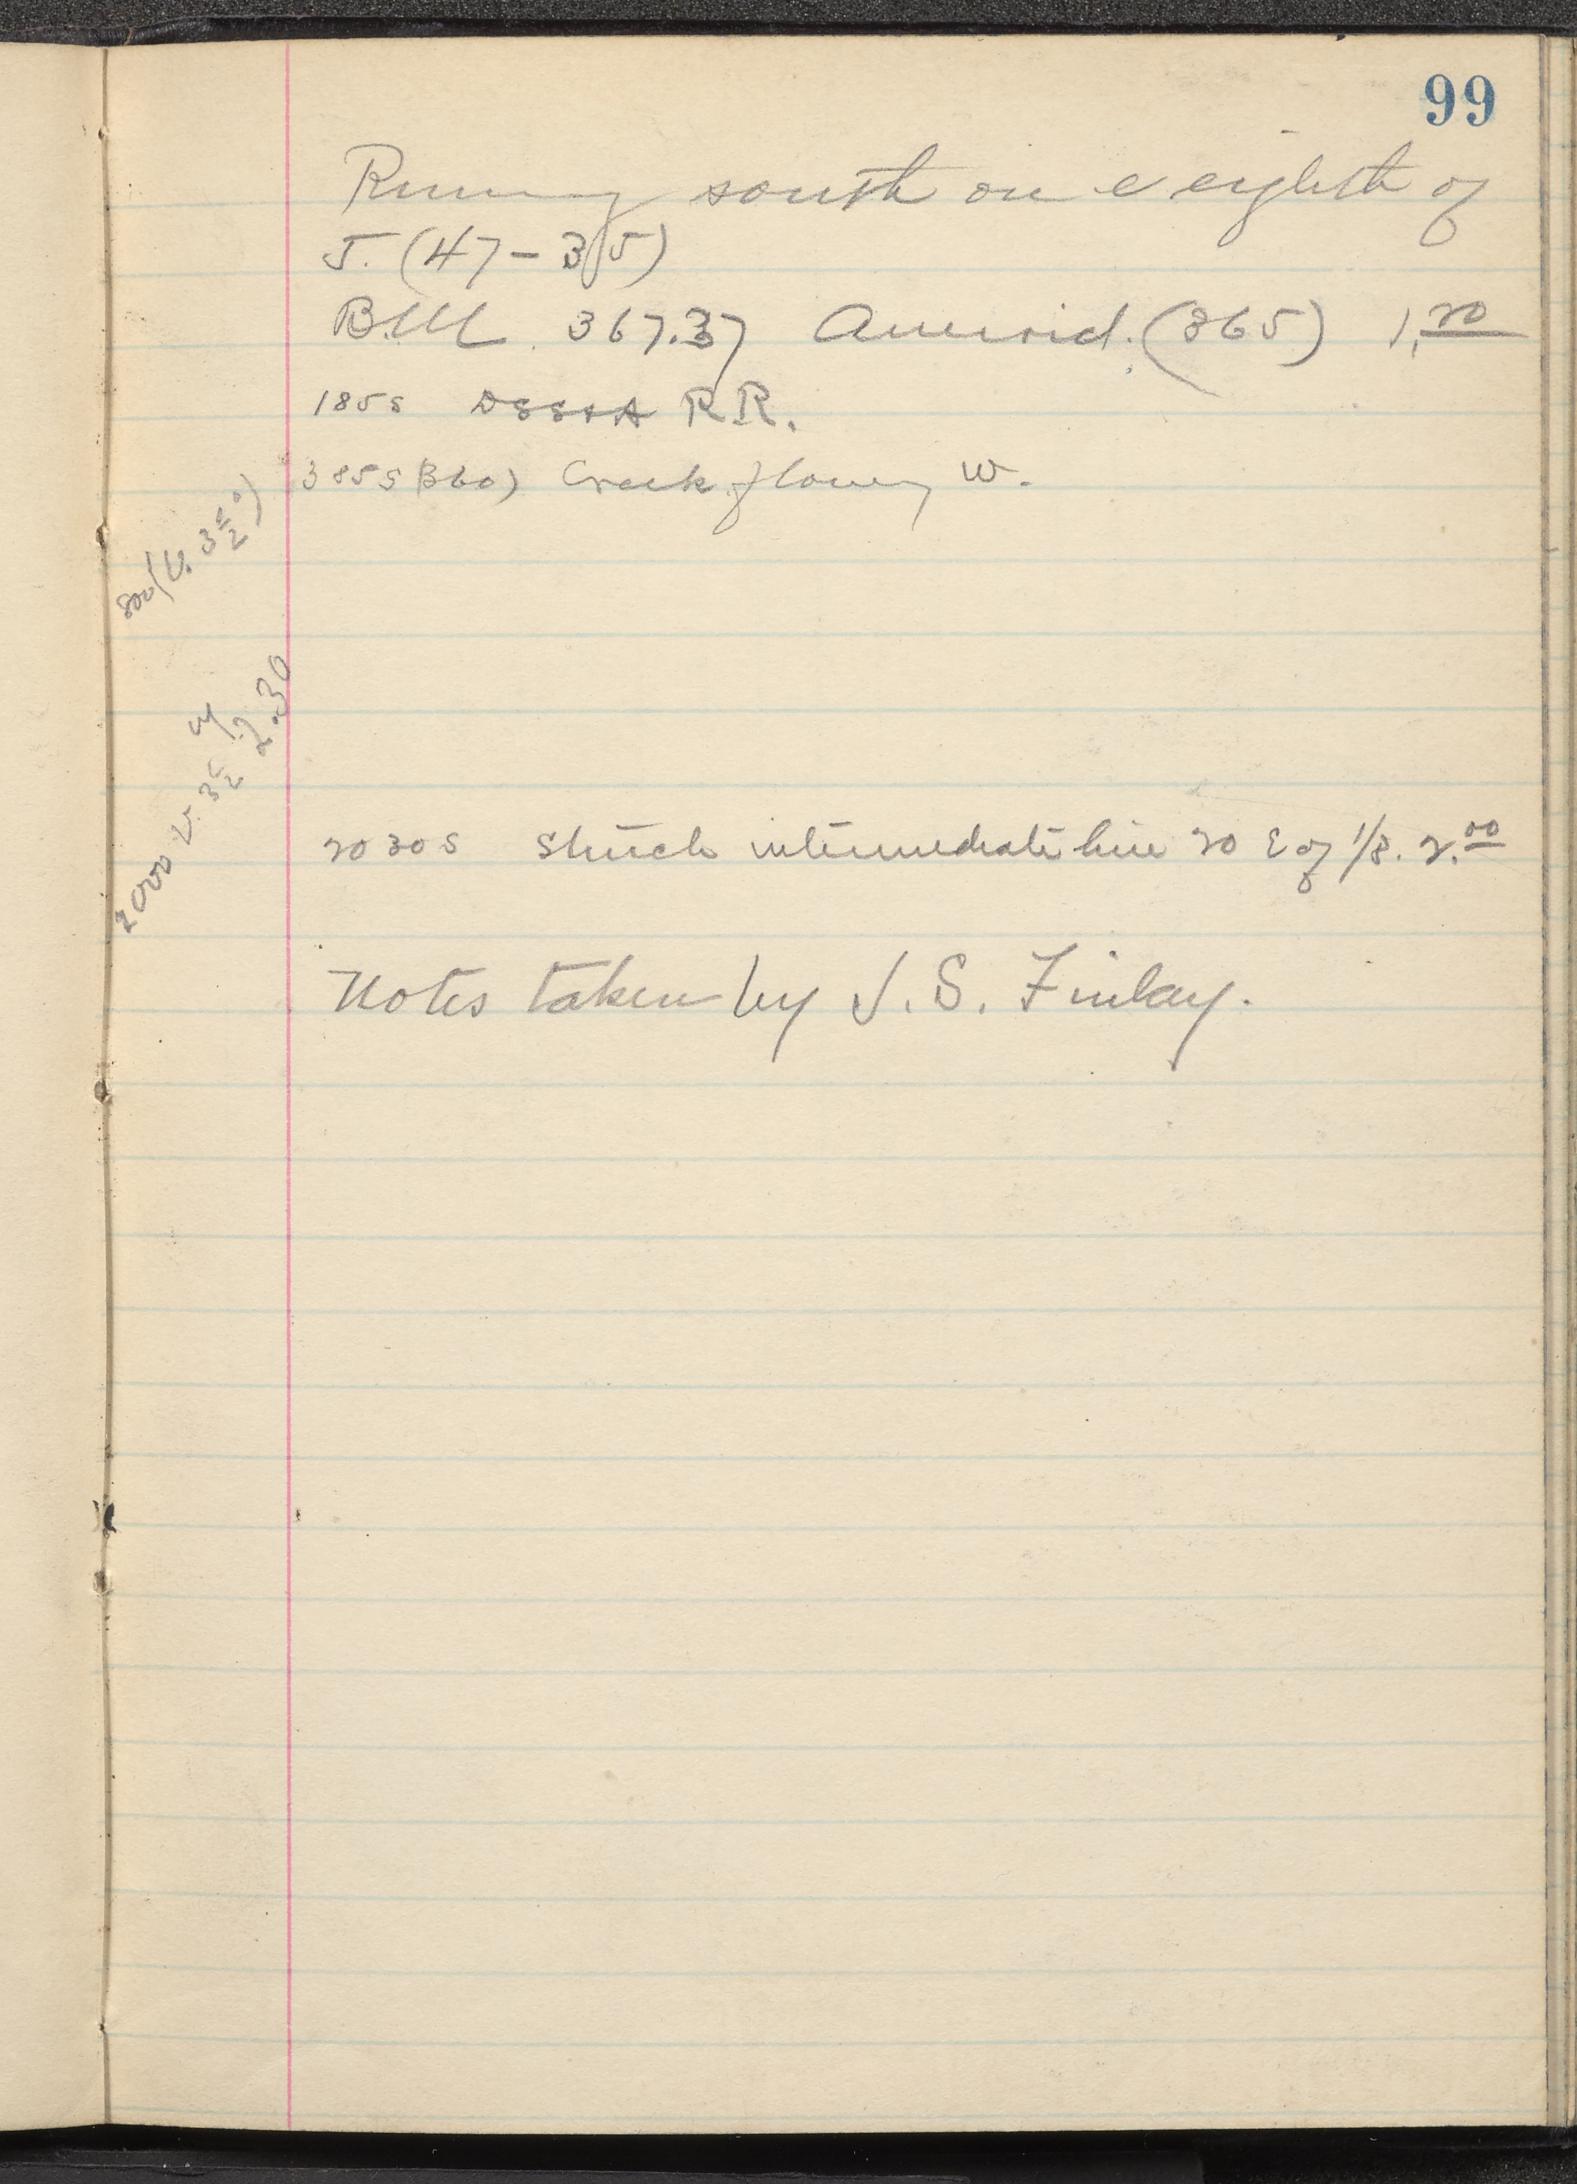 99
Running south on e eighth of
5. (47-35)
B.M. 367.37 Aneroid. (365) 1.20
185 S DSS&A RR.
385 S (360) Creek flowing W.
2030 S Struck intermediate line 20 E of 1/8. 2.00
Notes taken by J. S. Finlay.
2.30